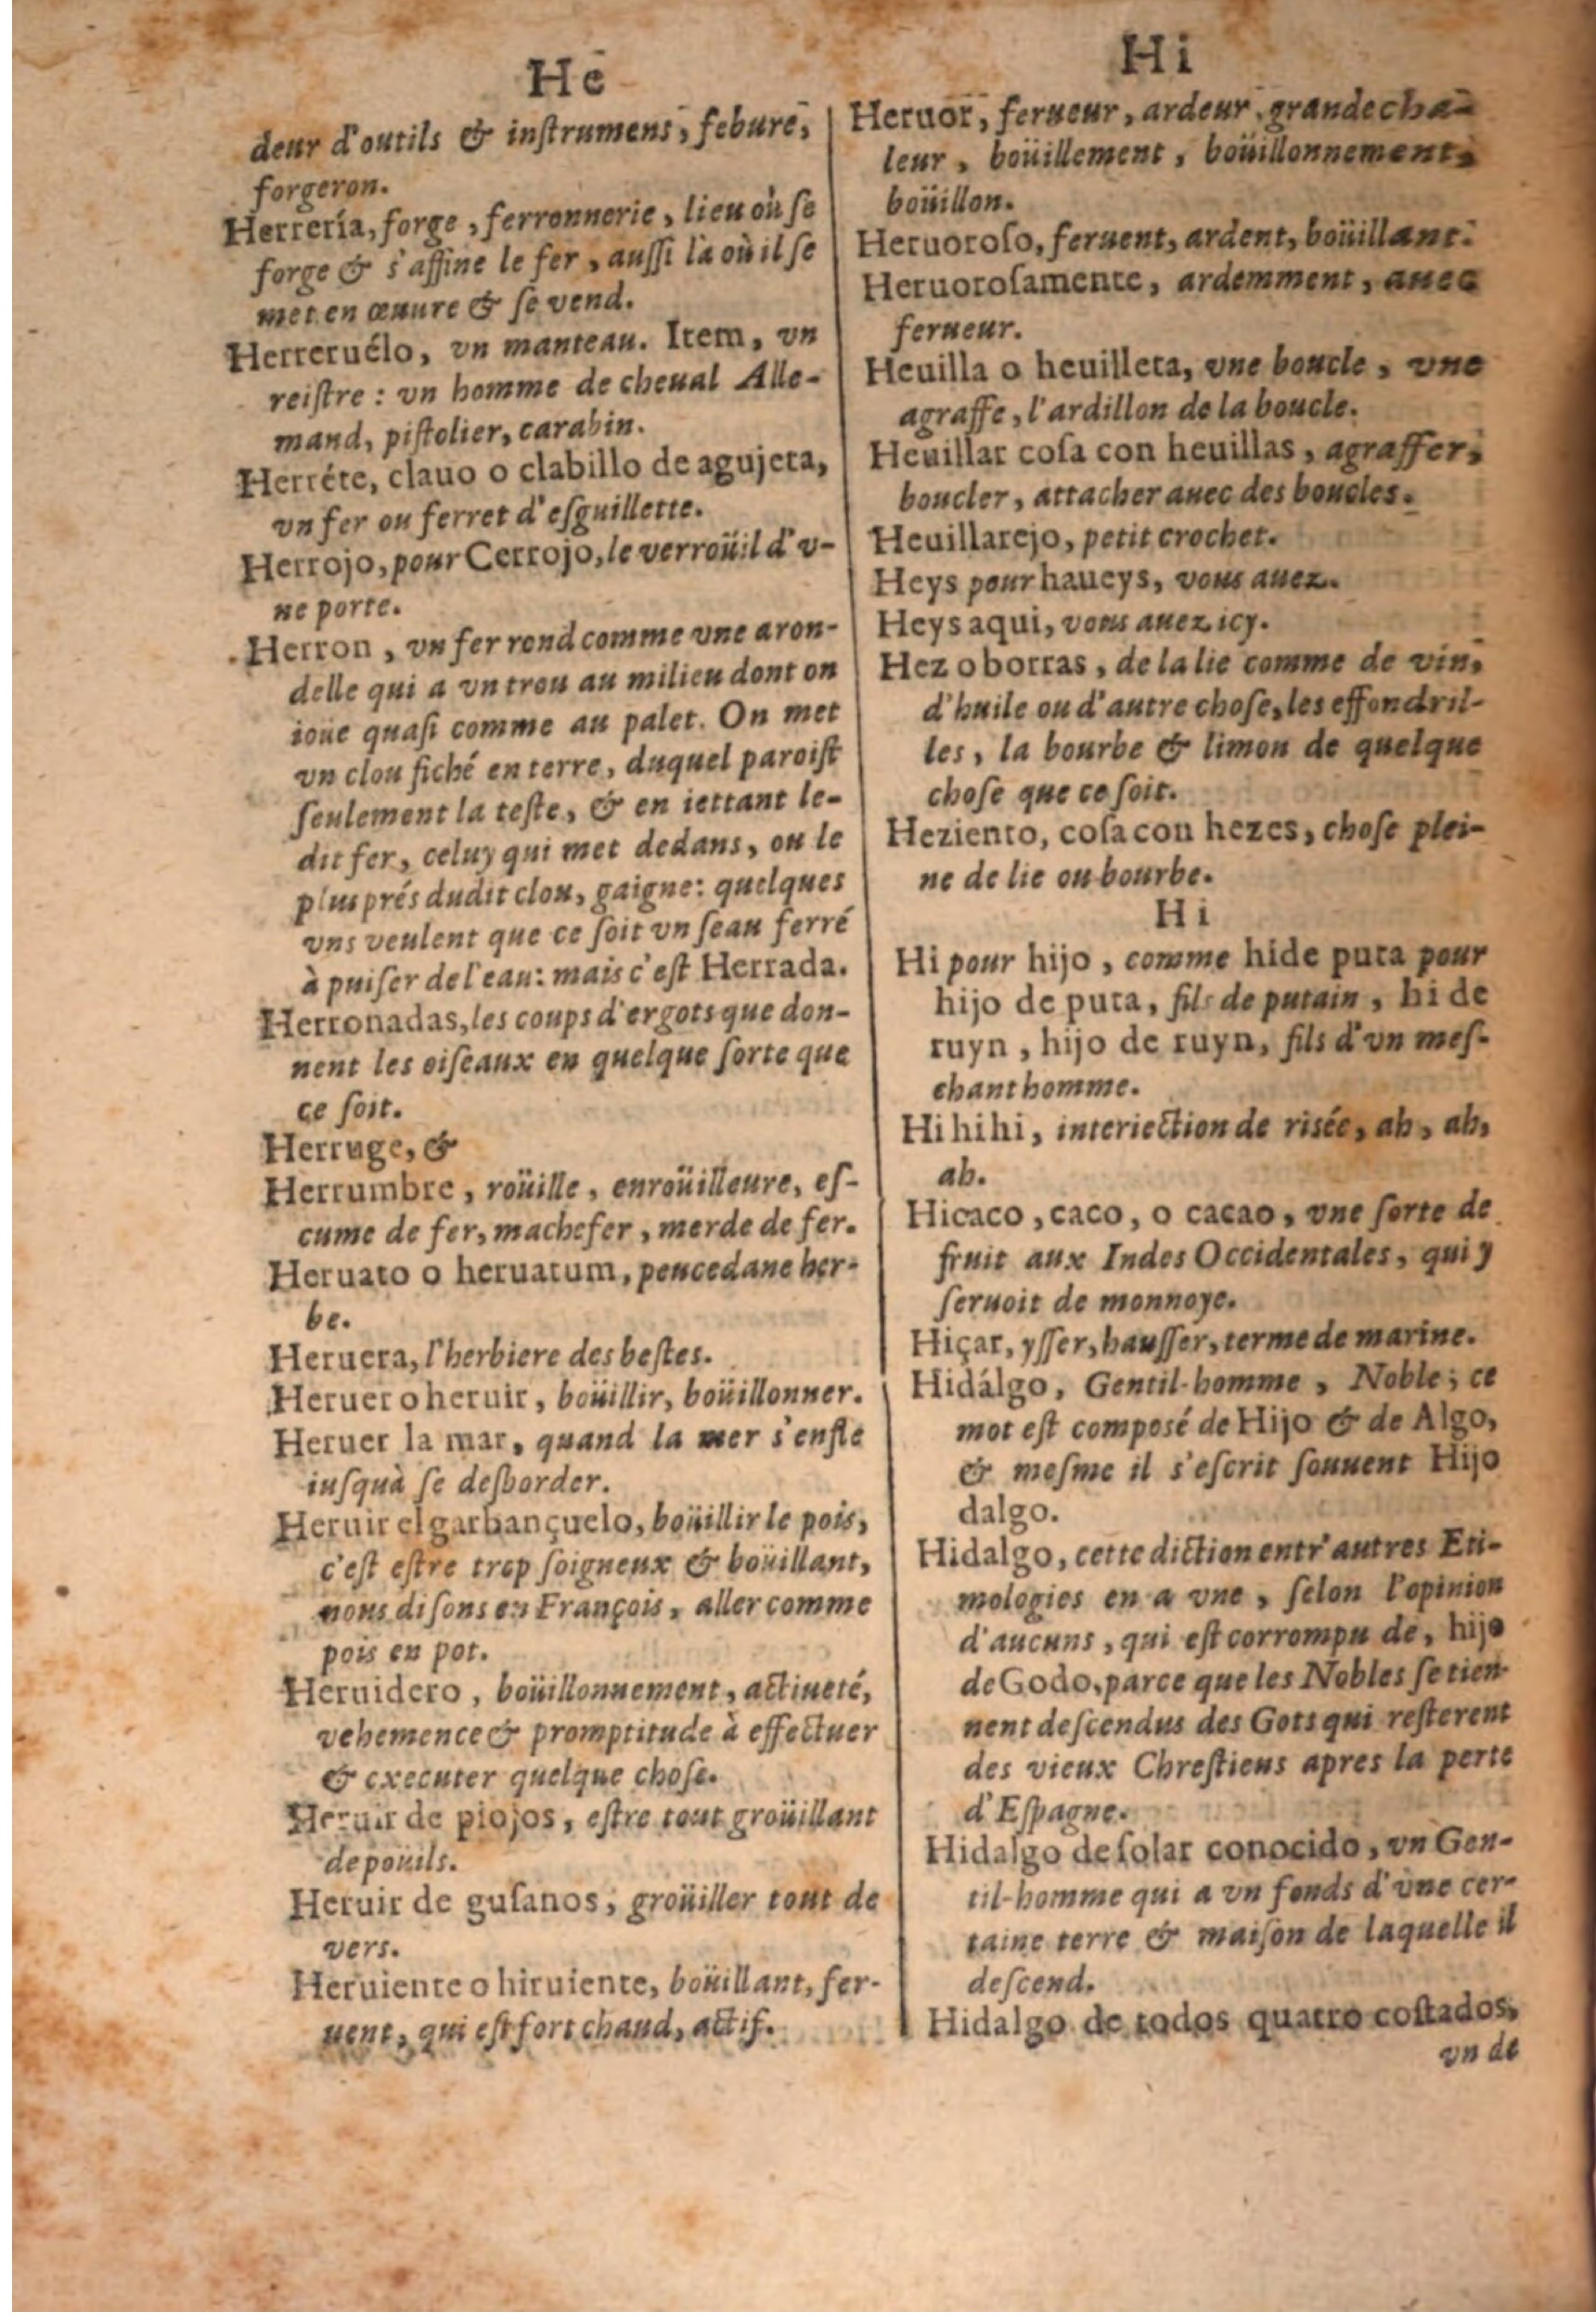 He
deur d'outils & inſtrumens, febure,
forgeron.
Herrería, forge, ferronnerie, lieu où ſe
forge & s'affine le fer, auſſi là où il ſe
met en œuure & ſe vend.
Herreruélo, vn manteau. Item, vn
reiſtre : vn homme de cheual Alle-
mand, piſtolier, carabin.
Herréte, clauo o clabillo de agujeta,
vn fer ou ferret d'eſguillette.
Herrojo, pour Cerrojo, le verroüil d'v-
ne porte.
Herron, vn fer rond comme vne aron-
delle qui a vn trou au milieu dont on
ioue quaſi comme au palet. On met
vn clou fiché en terre, duquel paroiſt
ſeulement la teſte, & en iettant le-
dit fer, celuy qui met dedans, ou le
plus prés dudit clou, gaigne: quelques
vns veulent que ce ſoit vn ſeau ferré
à puiſer de l'eau: mais c'eſt Herrada.
Herronadas, les coups d'ergots que don-
nent les oiſeaux en quelque ſorte que
ce ſoit.
Herruge, &
Herrumbre, roüille, enroüilleure, eſ-
cume de fer, machefer, merde de fer.
Heruato o heruatum, peucedane her-
be.
Heruera, l'herbiere des beſtes.
Heruer o heruir, boüillir, boüillonner.
Heruer la mar, quand la mer s'enfle
iuſquà ſe deſborder.
Heruir el garbançuelo, boüillir le pois,
c'eſt eſtre trop ſoigneux & boüillant,
nous diſons en François, aller comme
pois en pot.
Heruidero, boüillonnement, actiueté,
vehemence & promptitude à effectuer
& executer quelque choſe.
Heruir de piojos, eſtre tout groüillant
de poüils.
Heruir de guſanos, groüiller tout de
vers.
Heruiente o hiruiente, boüillant, fer-
uent, qui eſt fort chaud, actif.
Hi
Heruor, ferueur, ardeur, grande cha-
leur, boüillement, boüillonnement,
boüillon.
Heruoroſo, feruent, ardent, boüillant.
Heruoroſamente, ardemment, auec
ferueur.
Heuilla o heuilleta, vne boucle, vne
agraffe, l'ardillon de la boucle.
Heuillar coſa con heuillas, agraffer,
boucler, attacher auec des boucles.
Heuillarejo, petit crochet.
Heys pour haueys, vous auez.
Heys aqui, vous auez icy.
Hez o borras, de la lie comme de vin,
d'huile ou d'autre choſe, les effondril-
les, la bourbe & limon de quelque
choſe que ce ſoit.
Heziento, coſa con hezes, choſe plei-
ne de lie ou bourbe.
Hi
Hi pour hijo, comme hide puta pour
hijo de puta, fils de putain, hi de
ruyn, hijo de ruyn, fils d'vn meſ-
chant homme.
Hi hi hi, interiection de riſée, ah, ah,
ah.
Hicaco, caco, o cacao, vne ſorte de
fruit aux Indes Occidentales, qui y
ſeruoit de monnoye.
Hiçar, yſſer, hauſſer, terme de marine.
Hidálgo, Gentil-homme, Noble; ce
mot eſt compoſé de Hijo & de Algo,
& meſme il s'eſcrit ſouuent Hijo
dalgo.
Hidalgo, cette diction entr'autres Eti-
mologies en a vne, ſelon l'opinion
d'aucuns, qui eſt corrompu de, hijo
de Godo, parce que les Nobles ſe tien-
nent deſcendus des Gots qui reſterent
des vieux Chreſtiens apres la perte
d'Eſpagne.
Hidalgo de ſolar conocido, vn Gen-
til-homme qui a vn fonds d'vne cer-
taine terre & maiſon de laquelle il
deſcend.
Hidalgo de todos quatro coſtados,
vn de